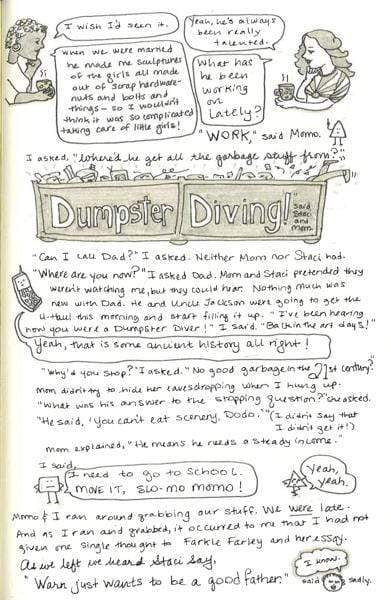 I wish I'd seen it.
when we were married
he made me sculptures
of the girls all made
out of scrap hardware-
nuts and bolts and
things - so I wouldn't
think it was so complicated
taking care of little girls!
Yeah, he's always
been really
talented.
What has
he been
working
on
lately?
"WORK," said Momo.
I asked, "Where'd he get all the garbage stuff from?"
"Dumpster Diving!" said Staci and Mom.
"Can I call Dad?" I asked. Neither Mom nor Staci had.
"Where are you now?" I asked Dad. Mom and Staci pretended they
weren't watching me, but they could hear. Nothing much was
new with Dad. He and Uncle Jackson were going to get the
U-Haul this morning and start filling it up. "I've been hearing
how you were a Dumpster Diver!" I said. "Back in the art days!"
Yeah, that is some ancient history all right!
"Why'd you stop?" I asked. "No good garbage in the 21st century?"
Mom didn't try to hide her eavesdropping when I hung up.
"What was his answer to the stopping question?" she asked.
"He said, 'You can't eat scenery, Dodo.'" (I didn't say that
I didn't get it!)
Mom explained, "He means he needs a steady income."
I said,
I need to go to school.
MOVE IT, SLO-MO MOMO!
Yeah,
yeah.
Momo & I ran around grabbing our stuff. We were late.
And as I ran and grabbed, it occurred to me that I had not
given one single thought to Farkle Farley and her essay.
As we left we heard Staci say,
"Warn just wants to be a good father."
I know.
said sadly.